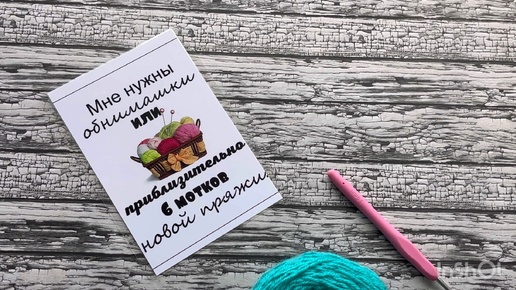 Мне нужны
обнимашки
или
приблизительно
6 мотков
новой пряжи
InShOt